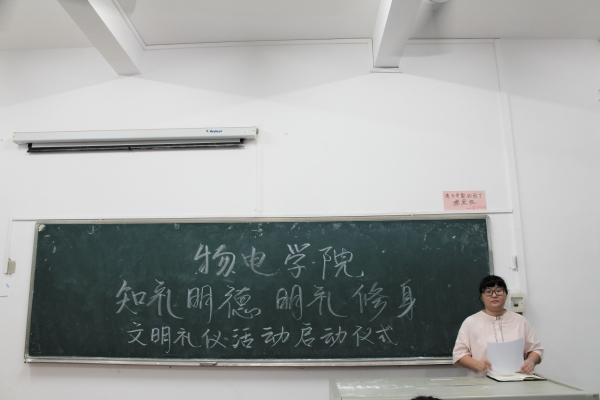 物电学院
知礼明德 明礼修身
文明礼仪活动启动仪式